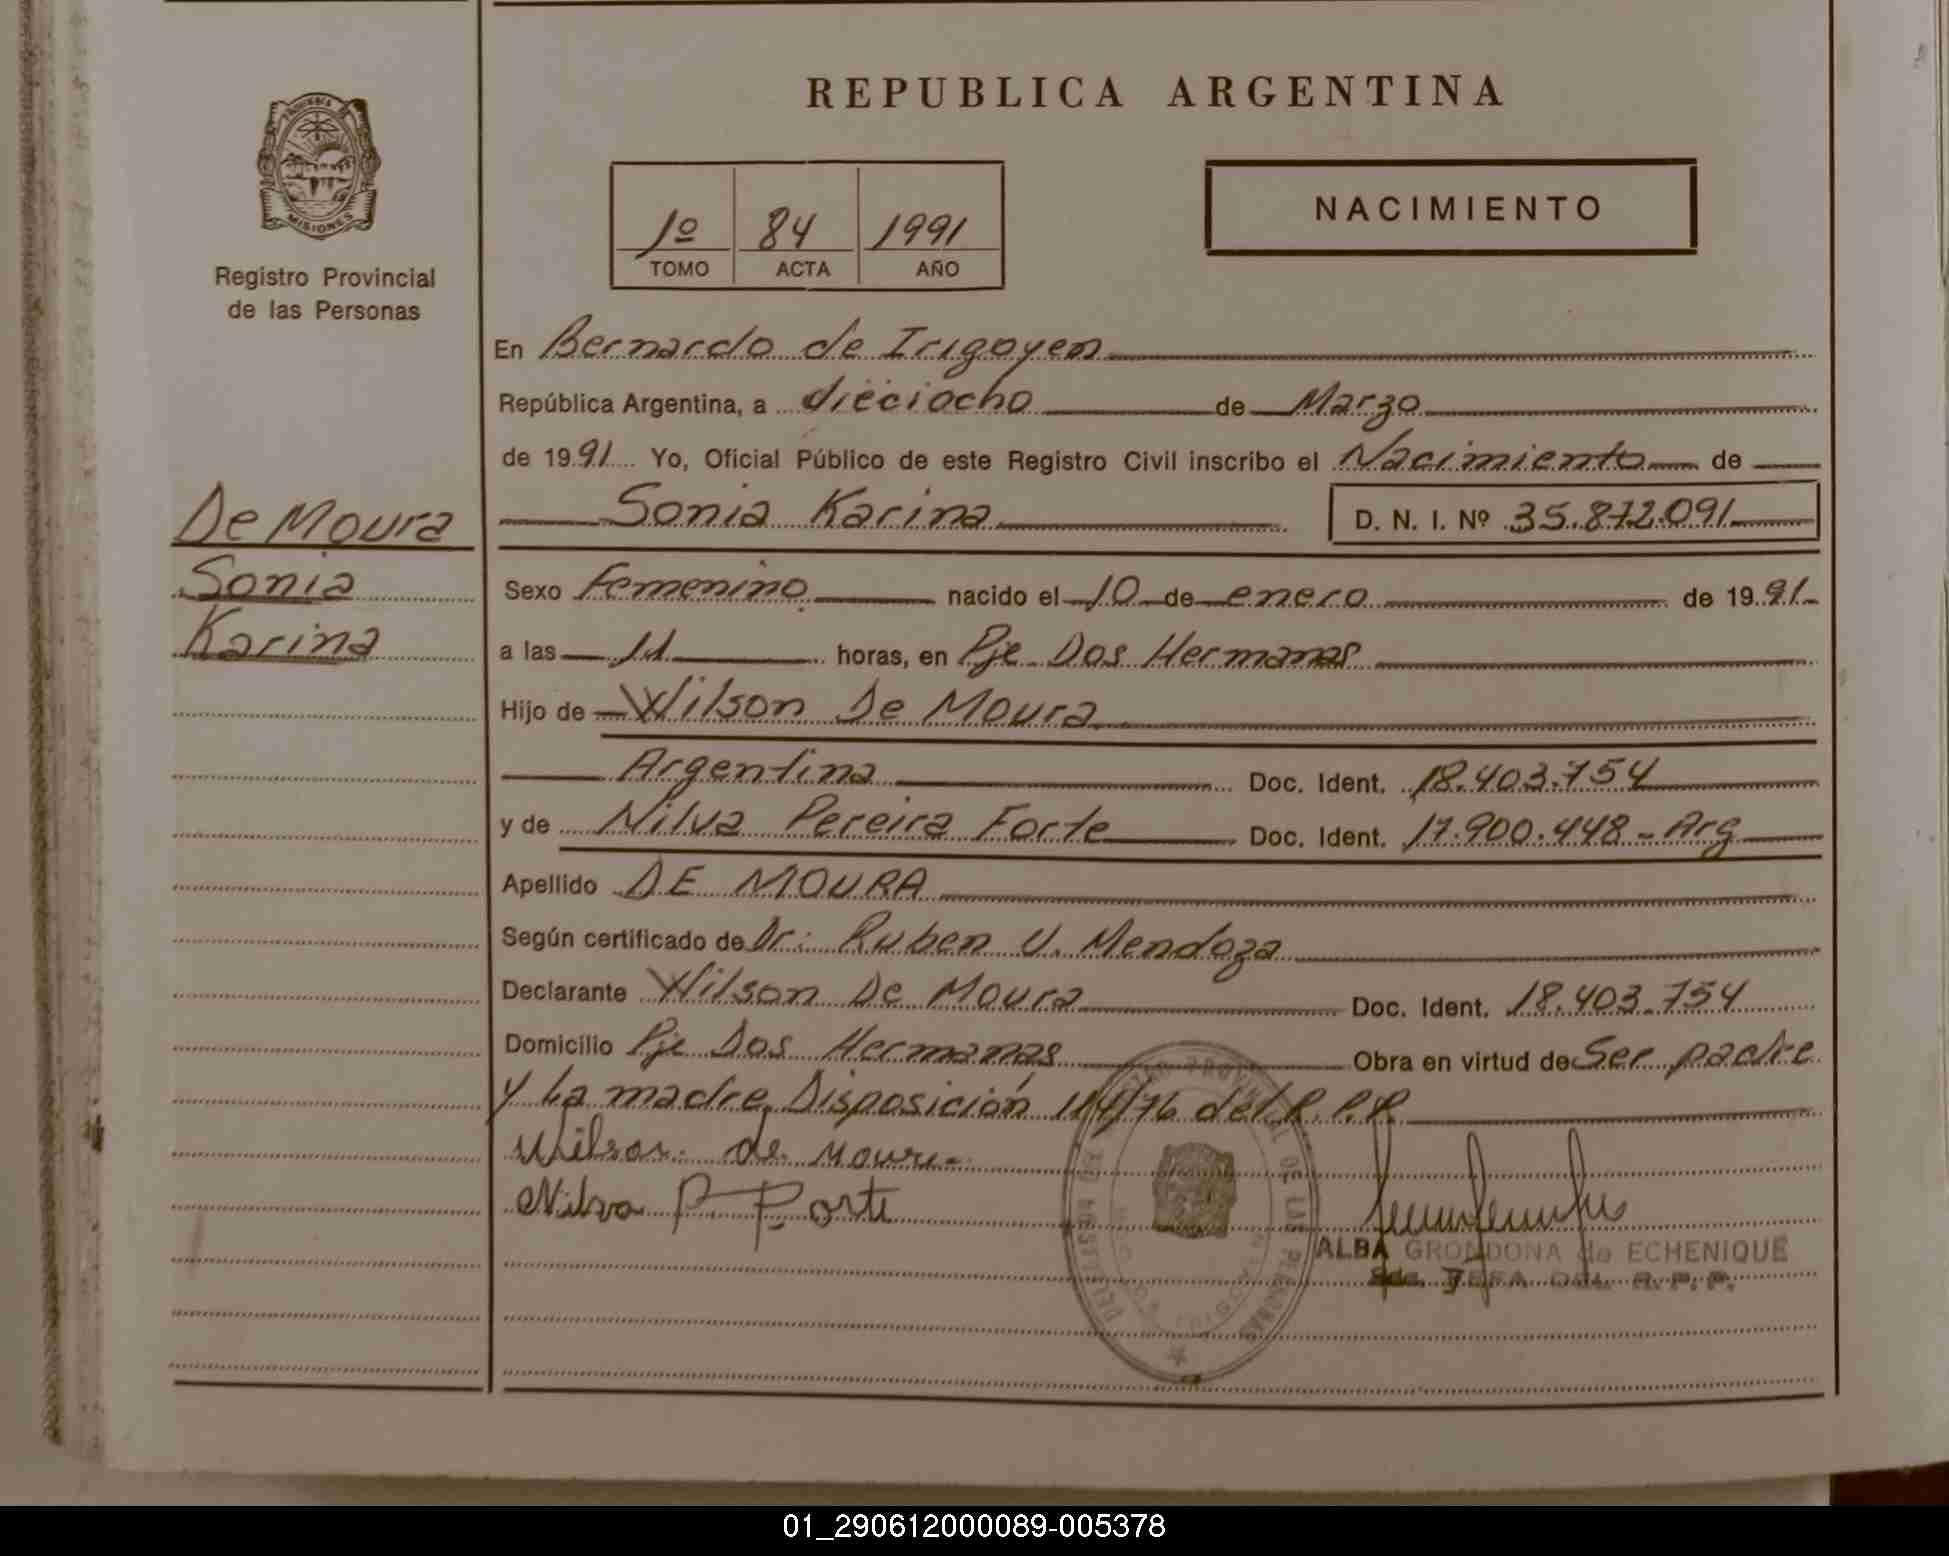 REPUBLICA ARGENTINA
PROVINCIA
MISIONES
Registro Provincial
de las Personas
1º 84 1991
TOMO ACTA AÑO
NACIMIENTO
En Bernardo de Irigoyen
República Argentina, a dieciocho de Marzo
de 1991 Yo, Oficial Público de este Registro Civil inscribo el Nacimiento de
Sonia Karina D. N. I. Nº 35.872.091
De Moura
Sonia
Karina
Sexo Femenino nacido el 10 de enero de 1991
a las 11 horas, en Pje Dos Hermanas
Hijo de Wilson De Moura
Argentina Doc. Ident. 18.403.754
y de Nilva Pereira Forte Doc. Ident. 17.900.448 - Arg
Apellido DE MOURA
Según certificado de Dr: Ruben V. Mendoza
Declarante Wilson De Moura Doc. Ident. 18.403.754
Domicilio Pje Dos Hermanas Obra en virtud de Ser padre
y La madre Disposición 114/76 del R.P.P.
Wilson de Moura
Nilva P. Forte
ALBA GRONDONA de ECHENIQUE
JEFA DEL R.P.P.
01_290612000089-005378